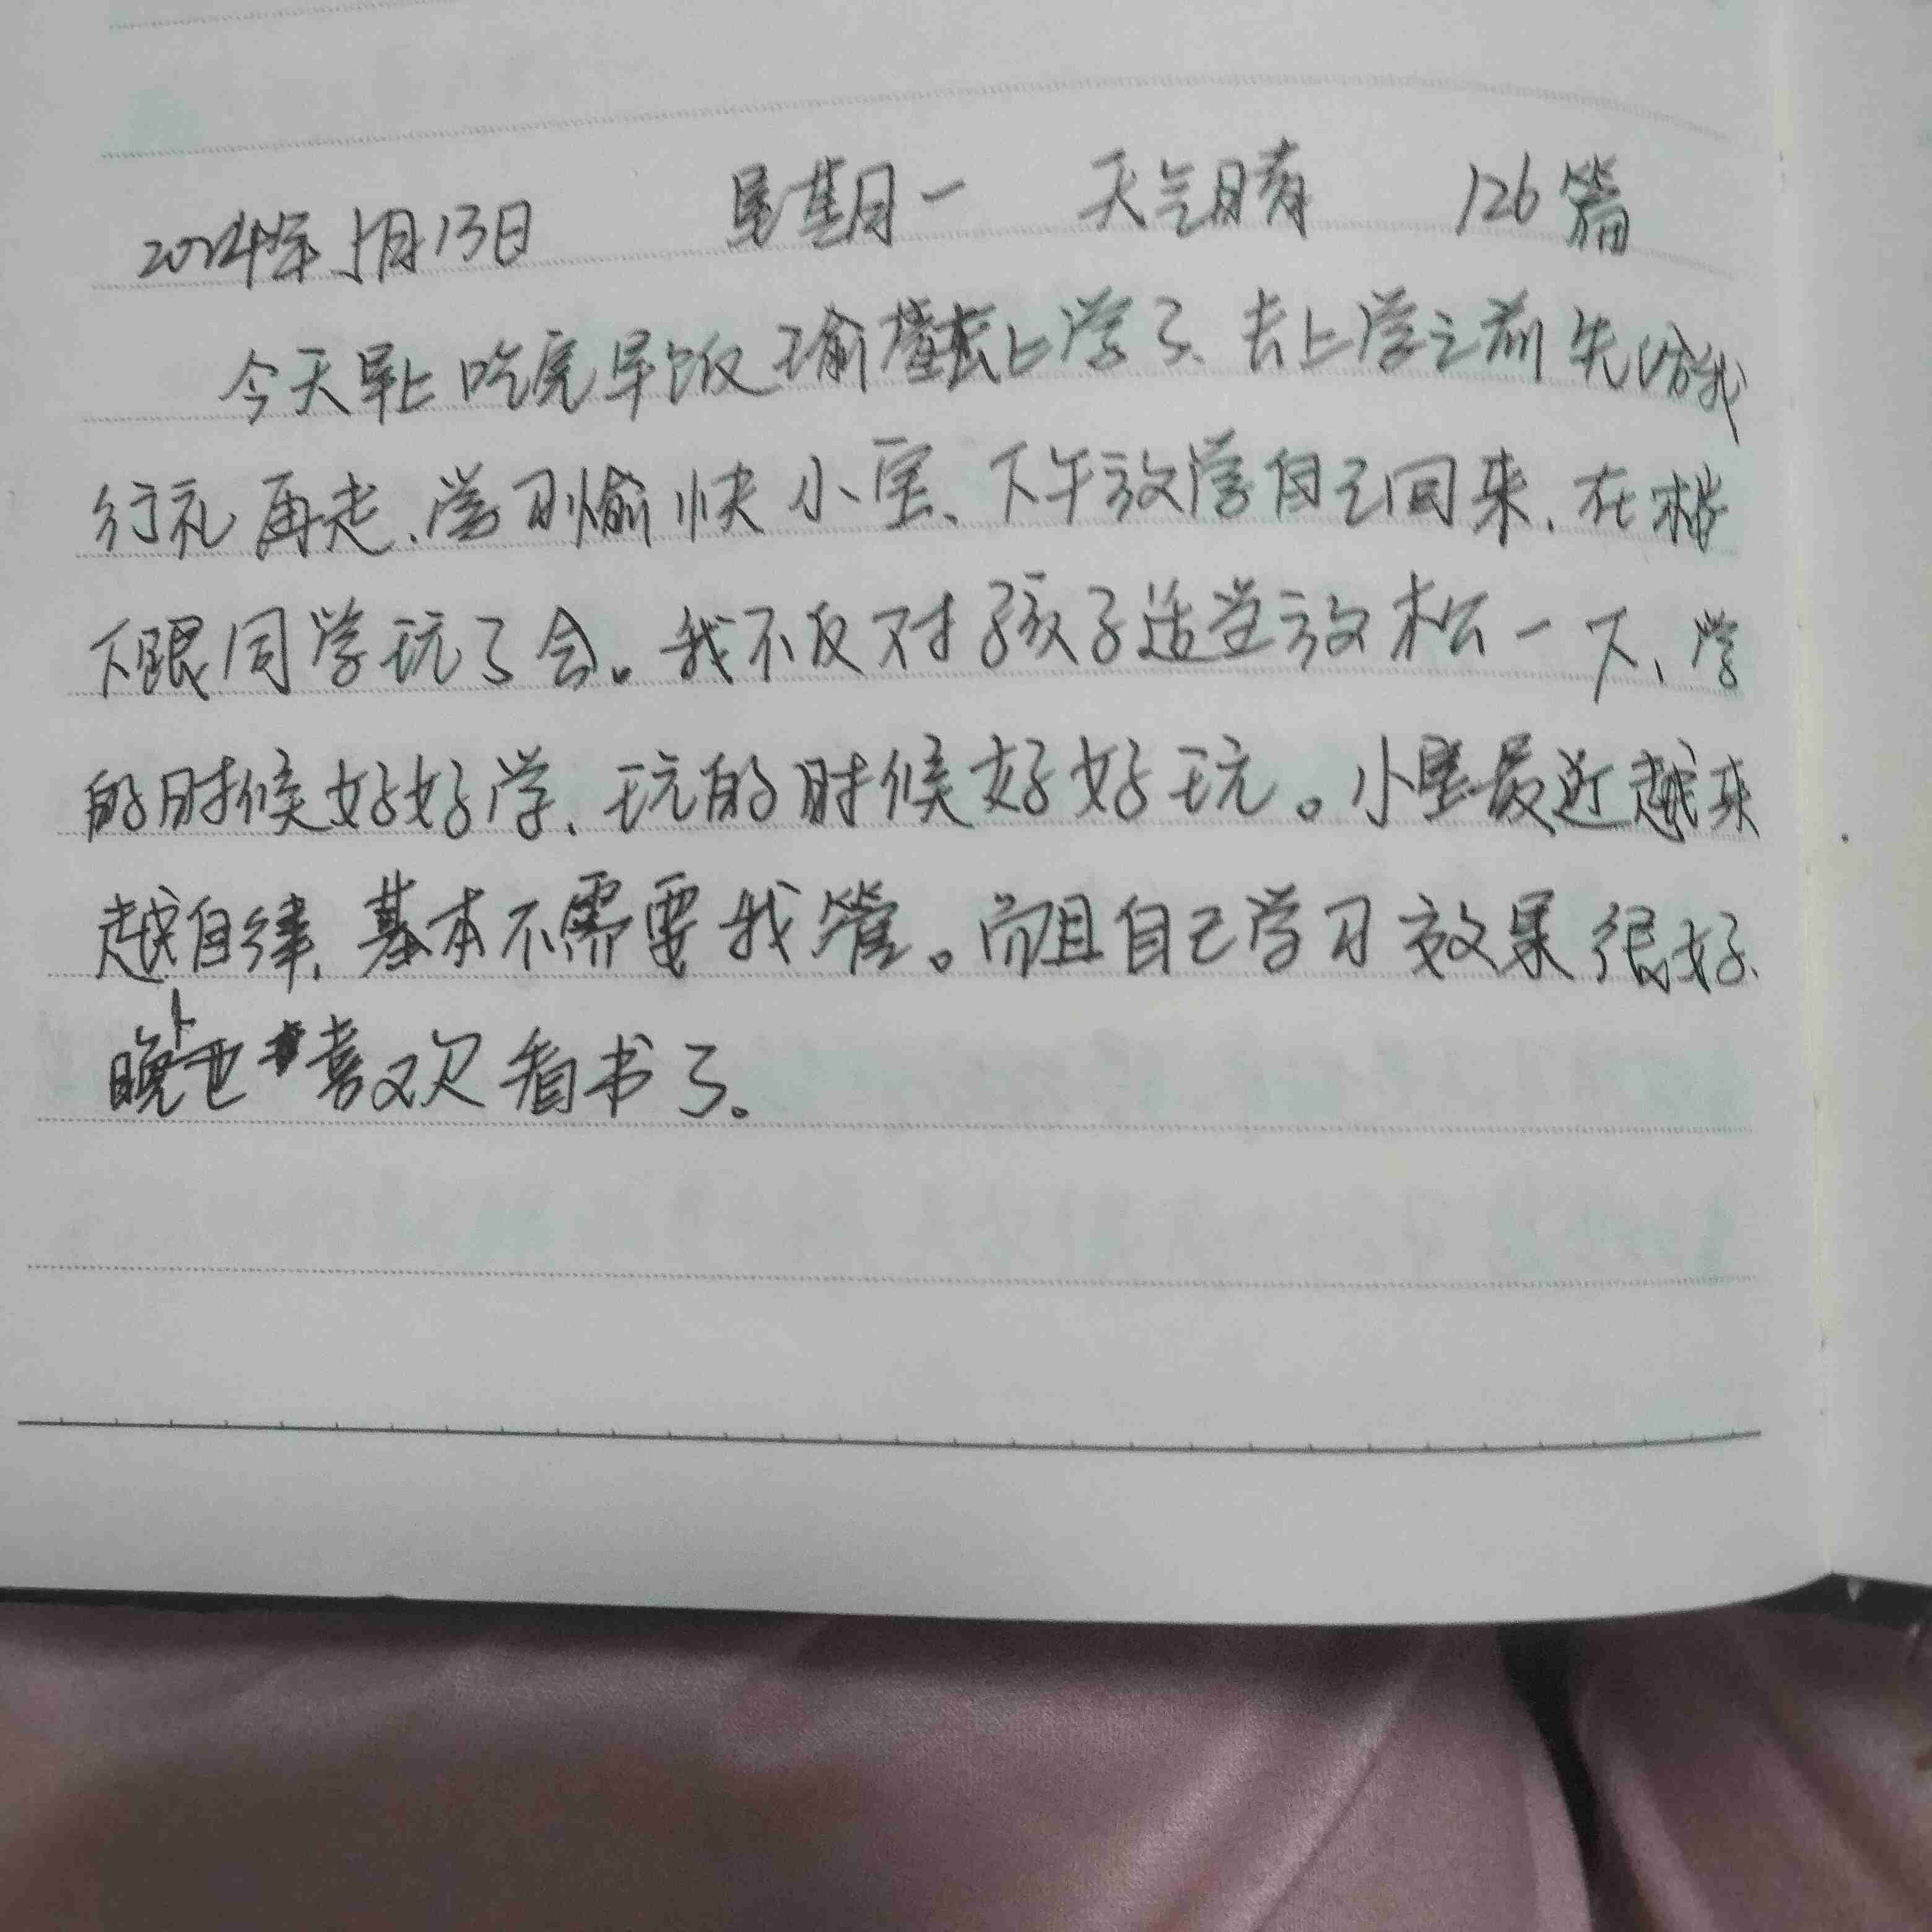 2024年5月13日 星期一 天气晴 126篇
今天早上吃完早饭瑜瑾去上学了、去上学之前先给我
行礼再走、学习愉快小宝、下午放学自己回来、在楼
下跟同学玩了会。我不反对孩子适当放松一下、学
的时候好好学、玩的时候好好玩。小宝最近越来
越自律、基本不需要我管。而且自己学习效果很好、
晚上也喜欢看书了。